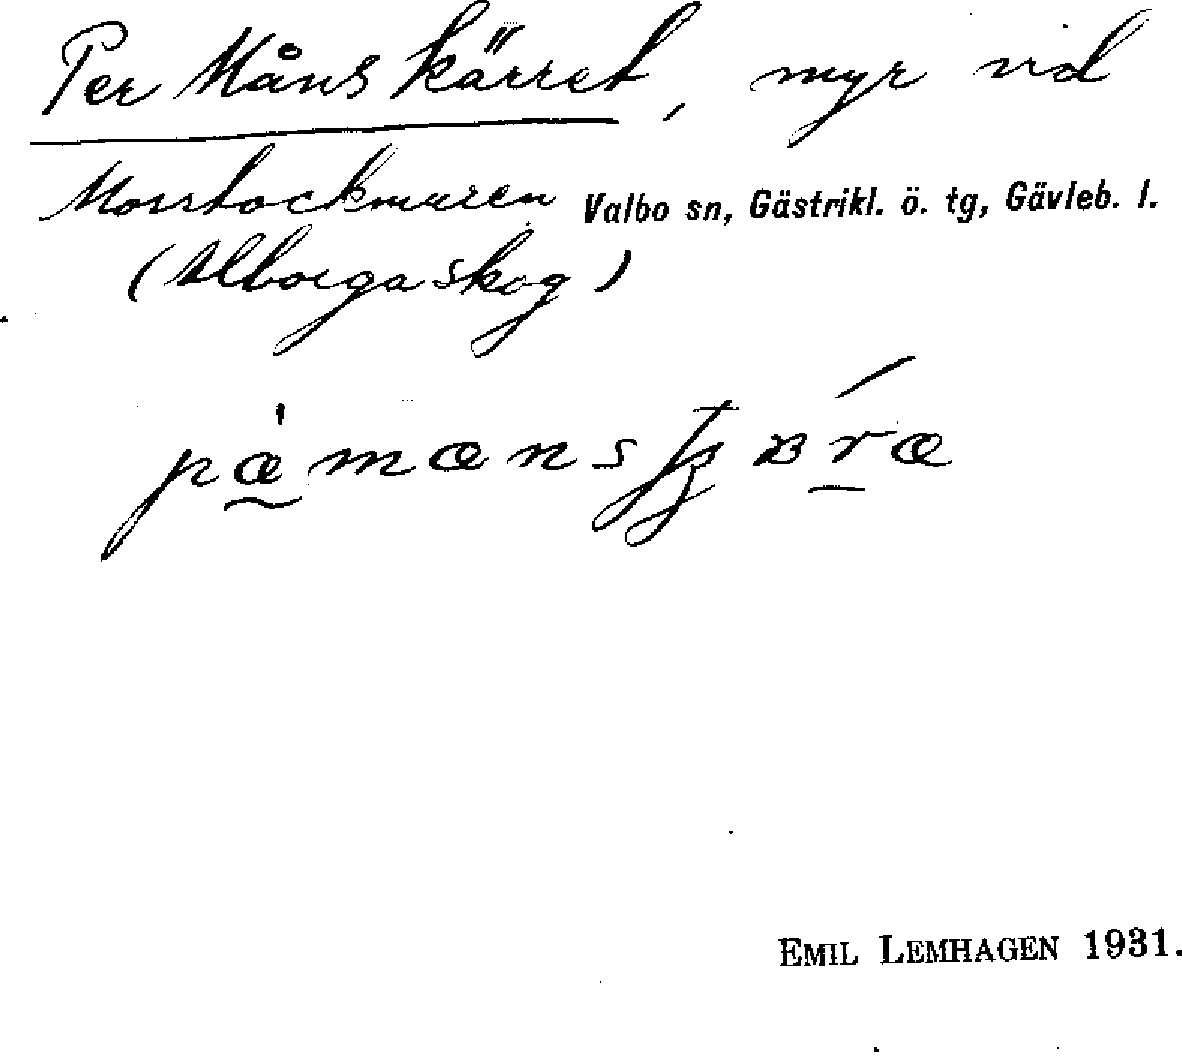 Per Måns kärret, myr vid
Morstockmuren Valbo sn, Gästrikl. ö. tg, Gävleb. l.
(Alborga skog)
EMIL LEMHAGEN 1931.